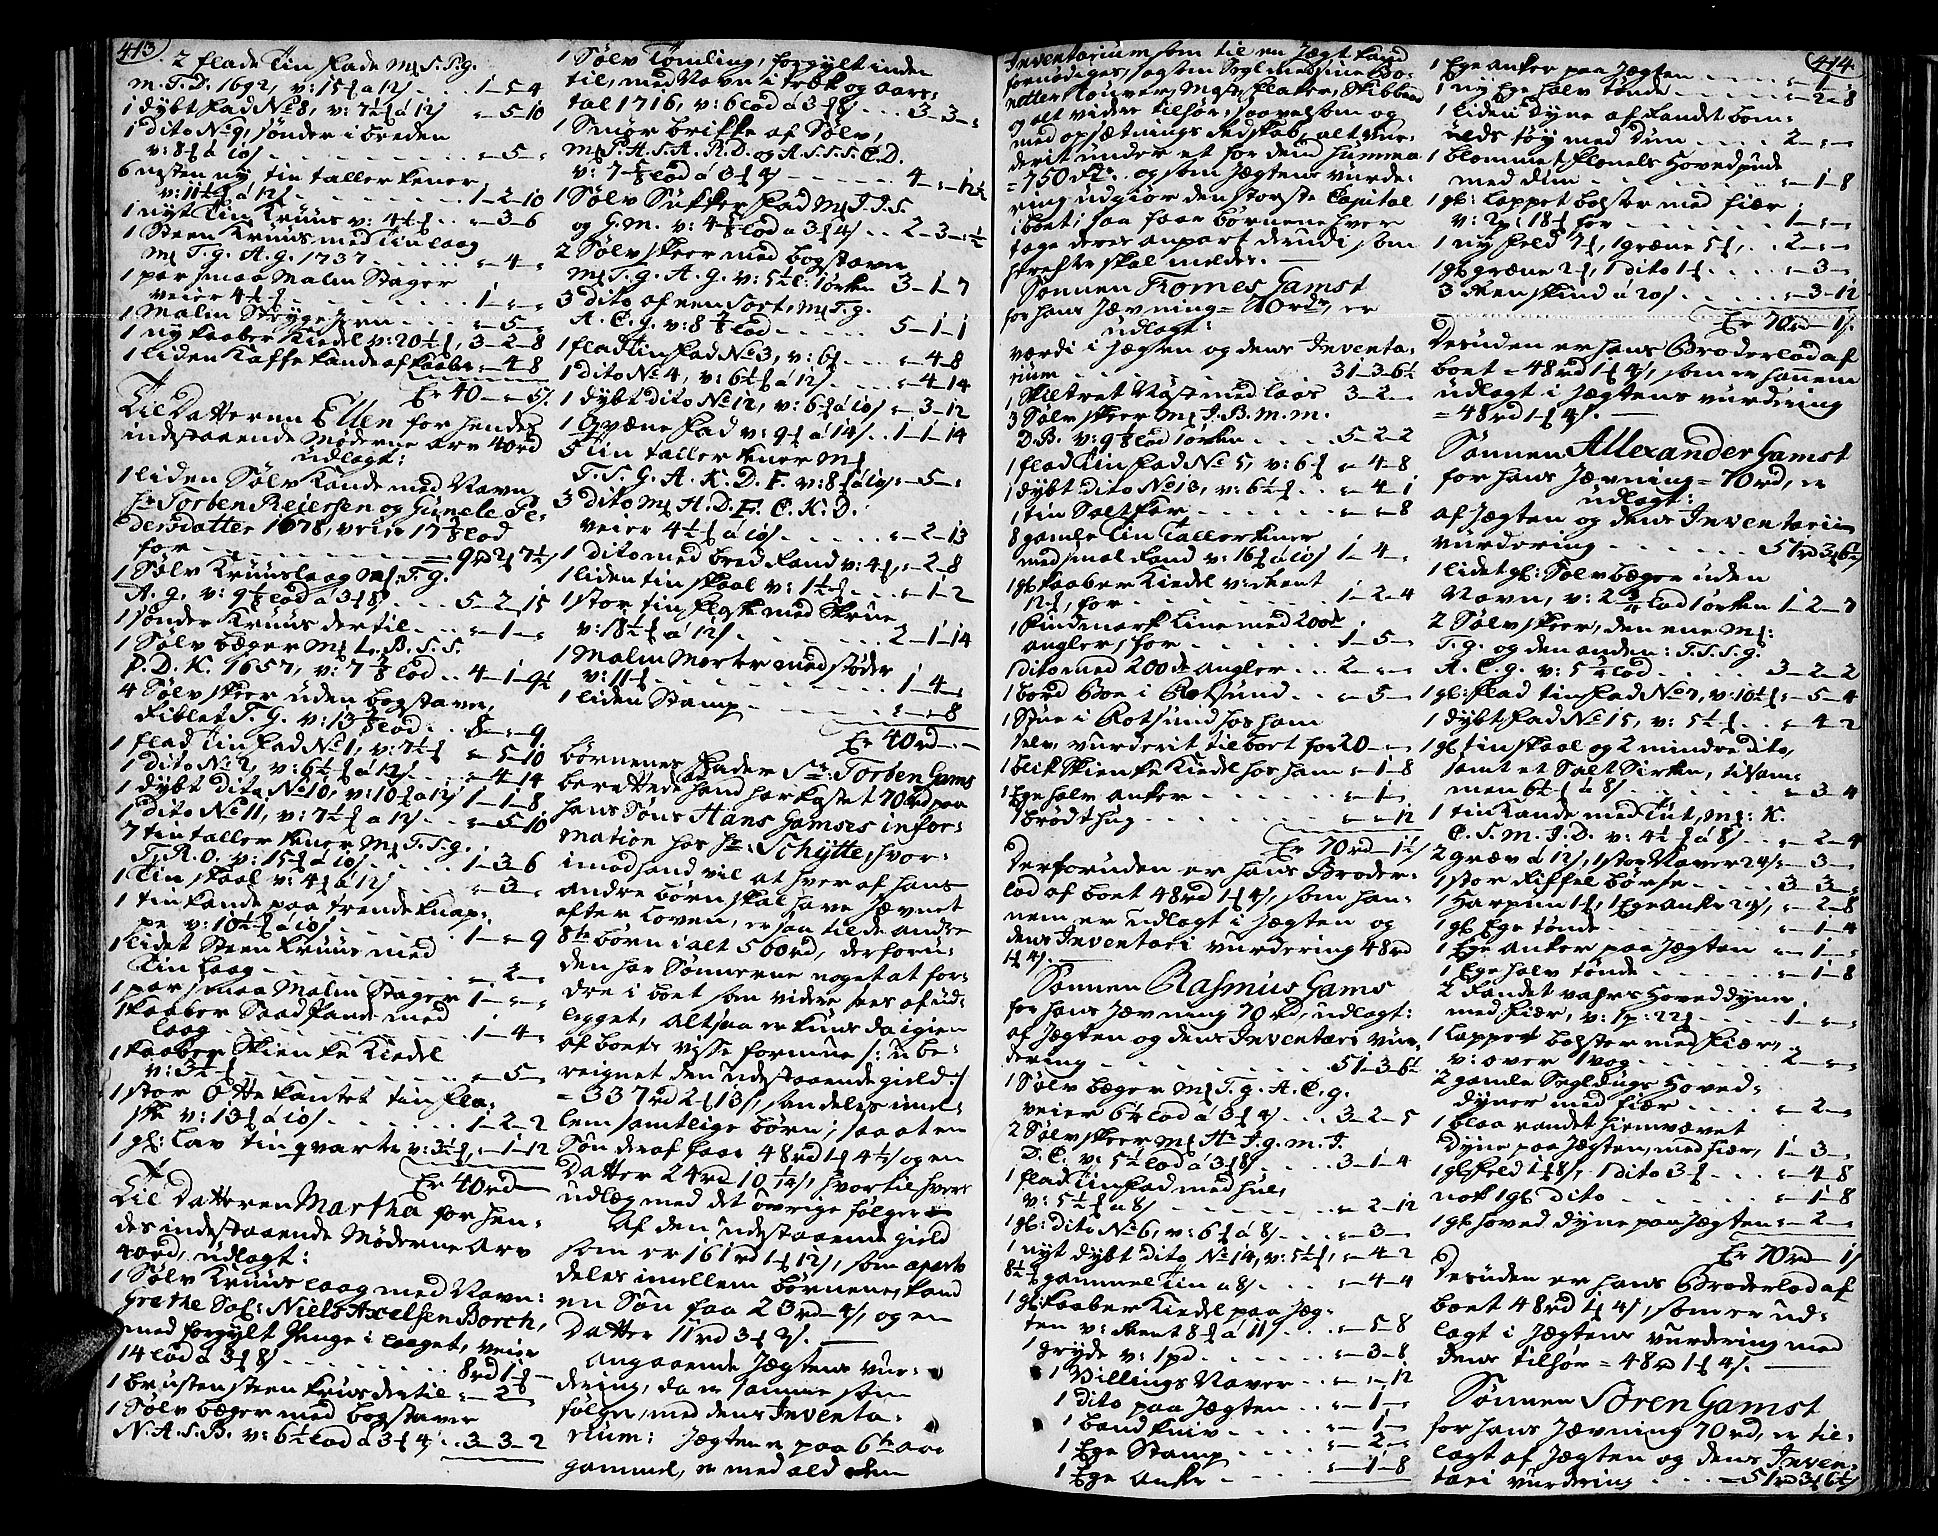 413.
2 flade Tin Fade M S. P. G.
M. T. D. 1692, v: 15 a 12 1-5-4
1 dybt Fad No 8, v: 7½ a 12 =-5-10
1 dito No 9, sønder i breden
v: 8 a 10 =-5-=
6 nesten ny tin tallerkener
v: 11½ a 12 1-2-10
1 nyt Tin Kruus v: 4½ =-3-6
1 Steen Kruus med Tin laag
M T. G. A. G. 1737 =-4-=
1 par smaa Malm Stager
veier 4½ 1-=-=
1 Malm Strygejern =-5-=
1 ny kaaber Kiedel v: 20½, 3-2-8
1 liden Kaffe kande af kaaber =-4-8
Er 40-=-5.
Til Datteren Ellen for hendes
indestaaende Møderne Arv 40rd
udlagt:
1 liden Sølv Kande med Navn
Torben Reiersen og Gunele Pe-
dersdatter 1678, veier 17 lod
for = 9rd 2 7½
1 Sølv Kruuslaag M T. G.
A. G. v: 9 lod a 3 8 5-2-15
1 sønder Kruus der til =-1-=
1 Sølv bæger M L. B. S. S.
P. D. K. 1657, v: 7 lod 4-1-9½
4 Sølv skeer uden bogstave,
Riblet T. G. v: 13 lod 8-=-9
1 flad Tin Fad No 1, v: 7½ =-5-10
1 dito No 2, v: 6½ a 12 =-4-14
1 dybt dito No 10, v: 10 a 12 1-1-8
1 dito No 11, v: 7½ a 12 =-5-10
7 tin tallerkener M T. S. G.
T. R. O. v: 15 a 10 1-3-6
1 Tin skaal v: 4 a 12 =-3-=
1 tin kande paa trende knap-
pe v: 10½ a 10 1-=-9
1 lidet Steen Kruus med
Tin laag =-2-=
1 par smaa Malm Stager 1-=-=
1 kaaber Saad Pande med
laag 1-4-=
1 kaaber Skienke Kiedel
v: 3½ =-5-=
1 stor Otte kantet tin fla-
ske v: 13 a 10 1-2-2
1 gl: Lav tin qvarte v: 3½, =-1-12
Er 40rd
Til Datteren Martha for hen-
des indestaaende Møderne Arv
40rd, udlagt:
1 Sølv Kruus laag med Navn:
Grethe Sal: Niels Axelsen Borch,
med forgylt Penge i laaget, veier
14 lod a 3 8 8rd 1
1 brusten steen kruus der til =-2
1 Sølv bæger med bogstaver
N. A. S. B. v: 6½ lod a 3 4 3-3-2
1 Sølv Tømling, forgylt inden
til, med Navn i træk og aars-
tal 1716, v: 6 lod a 3 8 3-3-=
1 Smør brikke af Sølv,
M P. A. S. A. R. D. og A. S. S. S. C. D.
v: 7 lod a 3 4 4-=-12½
1 Sølv Sukker Fad M I. I. S.
og G. M. v: 4 lod a 3 4 2-3-=½
2 Sølv skeer med bogstaver
M T. G. A. G. v: 5½ l: tørken 3-1-7
3 dito af een Sort, M T. G.
A. C. G. v: 8 lod 5-1-1
1 flad tin fad No 3, v: 6 =-4-8
1 dito No 4, v: 6½ a 12 =-4-14
1 dybt dito No 12, v: 6 a 10 =-3-12
1 Grøene Fad v: 9 a 14 1-1-14
5 tin tallerkener M
T. S. G. A. K. D. F. v: 8 a 10 =-5-=
3 dito M H. D. F. C. K. D.
veier 4½ a 10 =-2-13
1 dito med bred Rand v: 4, =-2-8
1 liden tin skaal v: 1½ =-1-2
1 stor tin flaske med Skrue
v: 18½ a 12 2-1-14
1 Malm Morter med støder
v: 11 1-4-=
1 liden Stamp =-=-8
Er 40rd
børnenes Fader Sr: Torben Gams
berettede hand har kostet 70rd paa
hans Søns Hans Gamses infor-
mation hos Hr: Schytte, hvor-
imod hand vil at hver af hans
andre børn skal have Jævnet
efter Loven, er saa til de andre
8te børn i alt 560rd, derforu-
den har Sønnerne noget at for-
dre i boet som videre sees af ud-
legget, Altsaa er kuns da igien
af boets visse formue /: ube-
reignet den udestaaende gield :/
= 337rd 2 13, som deles imel-
lem samtlige børn; saa at en
Søn deraf faar 48rd 1 4½, og en
Datter 24rd 10¼, hvor til hvers
udlæg med det øvrige følger
Af den udestaaende gield
som er 161rd 1 12, som aparte
deles imellem børnene, kand
en Søn faa 23rd 4, og en
Datter 11rd 3 2.
Angaaende Jægtens vur-
dering, da er samme som
følger, med dens Inventa-
rium: Jægten er paa 6te aar
gammel, er med ald den
414
Inventarium som til en Jægt kand
fornødiges, saasom Segl med sine Bo-
netter Klüver, Mast, Flager, Skibbaad
og alt videre tilhør, saavelsom og
med opsætnings Redskab, alt vur-
derit under et for den Summa
= 750 rdr. og som Jægtens vurde-
ring udgiør den største Capital
i boet; saa faar børnene hver
tage deres anpart derudi, som
herefter skal meldes.
Sønnen Tromes Gamst
for hans Jævning = 70rdr, er
udlagt:
værdi i Jægten og dens Inventa-
rium 31-3-6½
1 Skiltret Kast med laas 3-2-=
3 Sølv skeer M I. B. M. M.
D. B. v: 9 lod tørken 5-2-2
1 flad Tin Fad No 5, v: 6 =-4-8
1 dybt dito No 13, v: 6½ =-4-1
1 tin Salt kar =-=-8
8 gamle Tin Tallerkener
med smal Rand v: 16 a 10 1-4-=
1 gl: kaaber Kiedel v: ment
12, for 1-2-4
1 findmark Line med 200de
angler, for 1-5-=
1 dito med 200de angler 2-=-=
1 bord Boe i Rotsund =-5-=
1 Stue i Rotsund hos ham
selv, vurderit til boet for 20-=-=
1 blik Skienke Kiedel hos ham =-1-8
1 Ege halv anker =-1-=
1 brødt hug =-=-12
Er 70rd-1½
Derforuden er hans Broder-
lod af boet 48rd 1 4, som han-
nem er udlagt i Jægten og
dens Inventari vurdering 48rd
1 4.
Sønnen Rasmus Gams
for hans Jævning 70rd, udlagt:
af Jægten og dens Inventari vur-
dering 51-3-6½
1 Sølv bæger M T. G. A. C. G.
veier 6½ lod a 3 4 3-2-5
2 Sølv skeer M H. J. G. M. J.
D. C. v: 5½ lod a 3 8 3-1-4
1 flad Tin Fad med hul,
v: 5½ a 8 =-2-12
1 gl: dito No 6, v: 6 a 8 =-3-=
1 nyt dybt dito No 14, v: 5½, =-4-2
8½ gammel Tin a 8 =-4-4
1 gl: kaaber Kiedel paa Jæg-
ten v: ment 8 a 11 =-5-8
1 gryde v: 1pd =-3-8
1 Villings Naver =-=-12
1 dito paa Jægten =-1-=
1 band kniv =-1-=
1 Ege Stamp =-2-=
1 Ege Anker =-1-8
1 Ege anker paa Jægten =-1-=
1 ny Ege halv tønde =-2-8
1 liden dyne af Randet bom-
ulds tøy med Dun 2-=-=
1 blommet flonels Hovedpude
med dun =-1-8
1 gl: lappet bolster med fiær
v: 2p: 18 for 1-=-=
1 ny feld 7, 1 grøene 5, 2-=-=
1 gl: grøene 2, 1 dito 1 =-3-=
3 Reenskind a 20 =-3-12
Er 70rd 1.
Desuden er hans Broderlod af
boet = 48rd 1 4, som er hannem
udlagt i Jægtens vurdering
= 48rd 1 4.
Sønnen Allexander Gamst
for hans Jævning = 70rd, er
udlagt:
af Jægten og dens Inventarii
vurdering 51rd 3 6½
1 lidet gl: Sølv bæger uden
Navn, v: 2¾ lod tørken 1-2-7
2 Sølv skeer, den ene M:
T. G. og den anden: T. S. S. G.
A. C. G. v: 5¼ lod 3-2-2
1 gl: flad tin Fad No 7, v: 10½ =-5-4
1 dybt Fad No 15, v: 5½ =-4-2
1 gl: tin skaal og 2 mindre dito,
samt et Salt Sirken, tilsam-
men 6½ a 8 =-3-4
1 tin Kande med Tut, M: K.
C. S. M. J. D. v: 4½ a 8 =-2-4
2 græv a 12, 1 stor Naver 24 =-3-=
1 stor Riffel børse 3-3-=
1 Harpun 1, 1 Ege anker 24, =-2-8
1 gl: Ege tønde =-1-4
1 Ege anker paa Jægten =-1-=
1 Ege halv tønde =-1-8
2 Randet vahrs Hoveddyner
med fiær, v: 1p: 22 1-=-=
1 lappet bolster med fiær,
v: over 1 vog 2-=-=
2 gamle Segldugs Hoved-
dyner med fiær =-2-=
1 blaa randet hiemvævet
dyne paa Jægten, med fiær, 1-3-=
1 gl: feld 1 8, 1 dito 3 =-4-8
nok 1 gl: dito =-1-8
1 gl: hoved dyne paa Jægten =-2-=
Er 70rd 1
Desuden er hans Broderlod af
boet 48rd 1 4, som er ud-
lagt i Jægtens vurdering med
dens tilhør = 48rd 1 4.
Sønnen Søren Gamst
for hans Jævning 70rd, er til-
lagt af Jægten og dens Inven-
tari vurdering = 51rd 3 6½